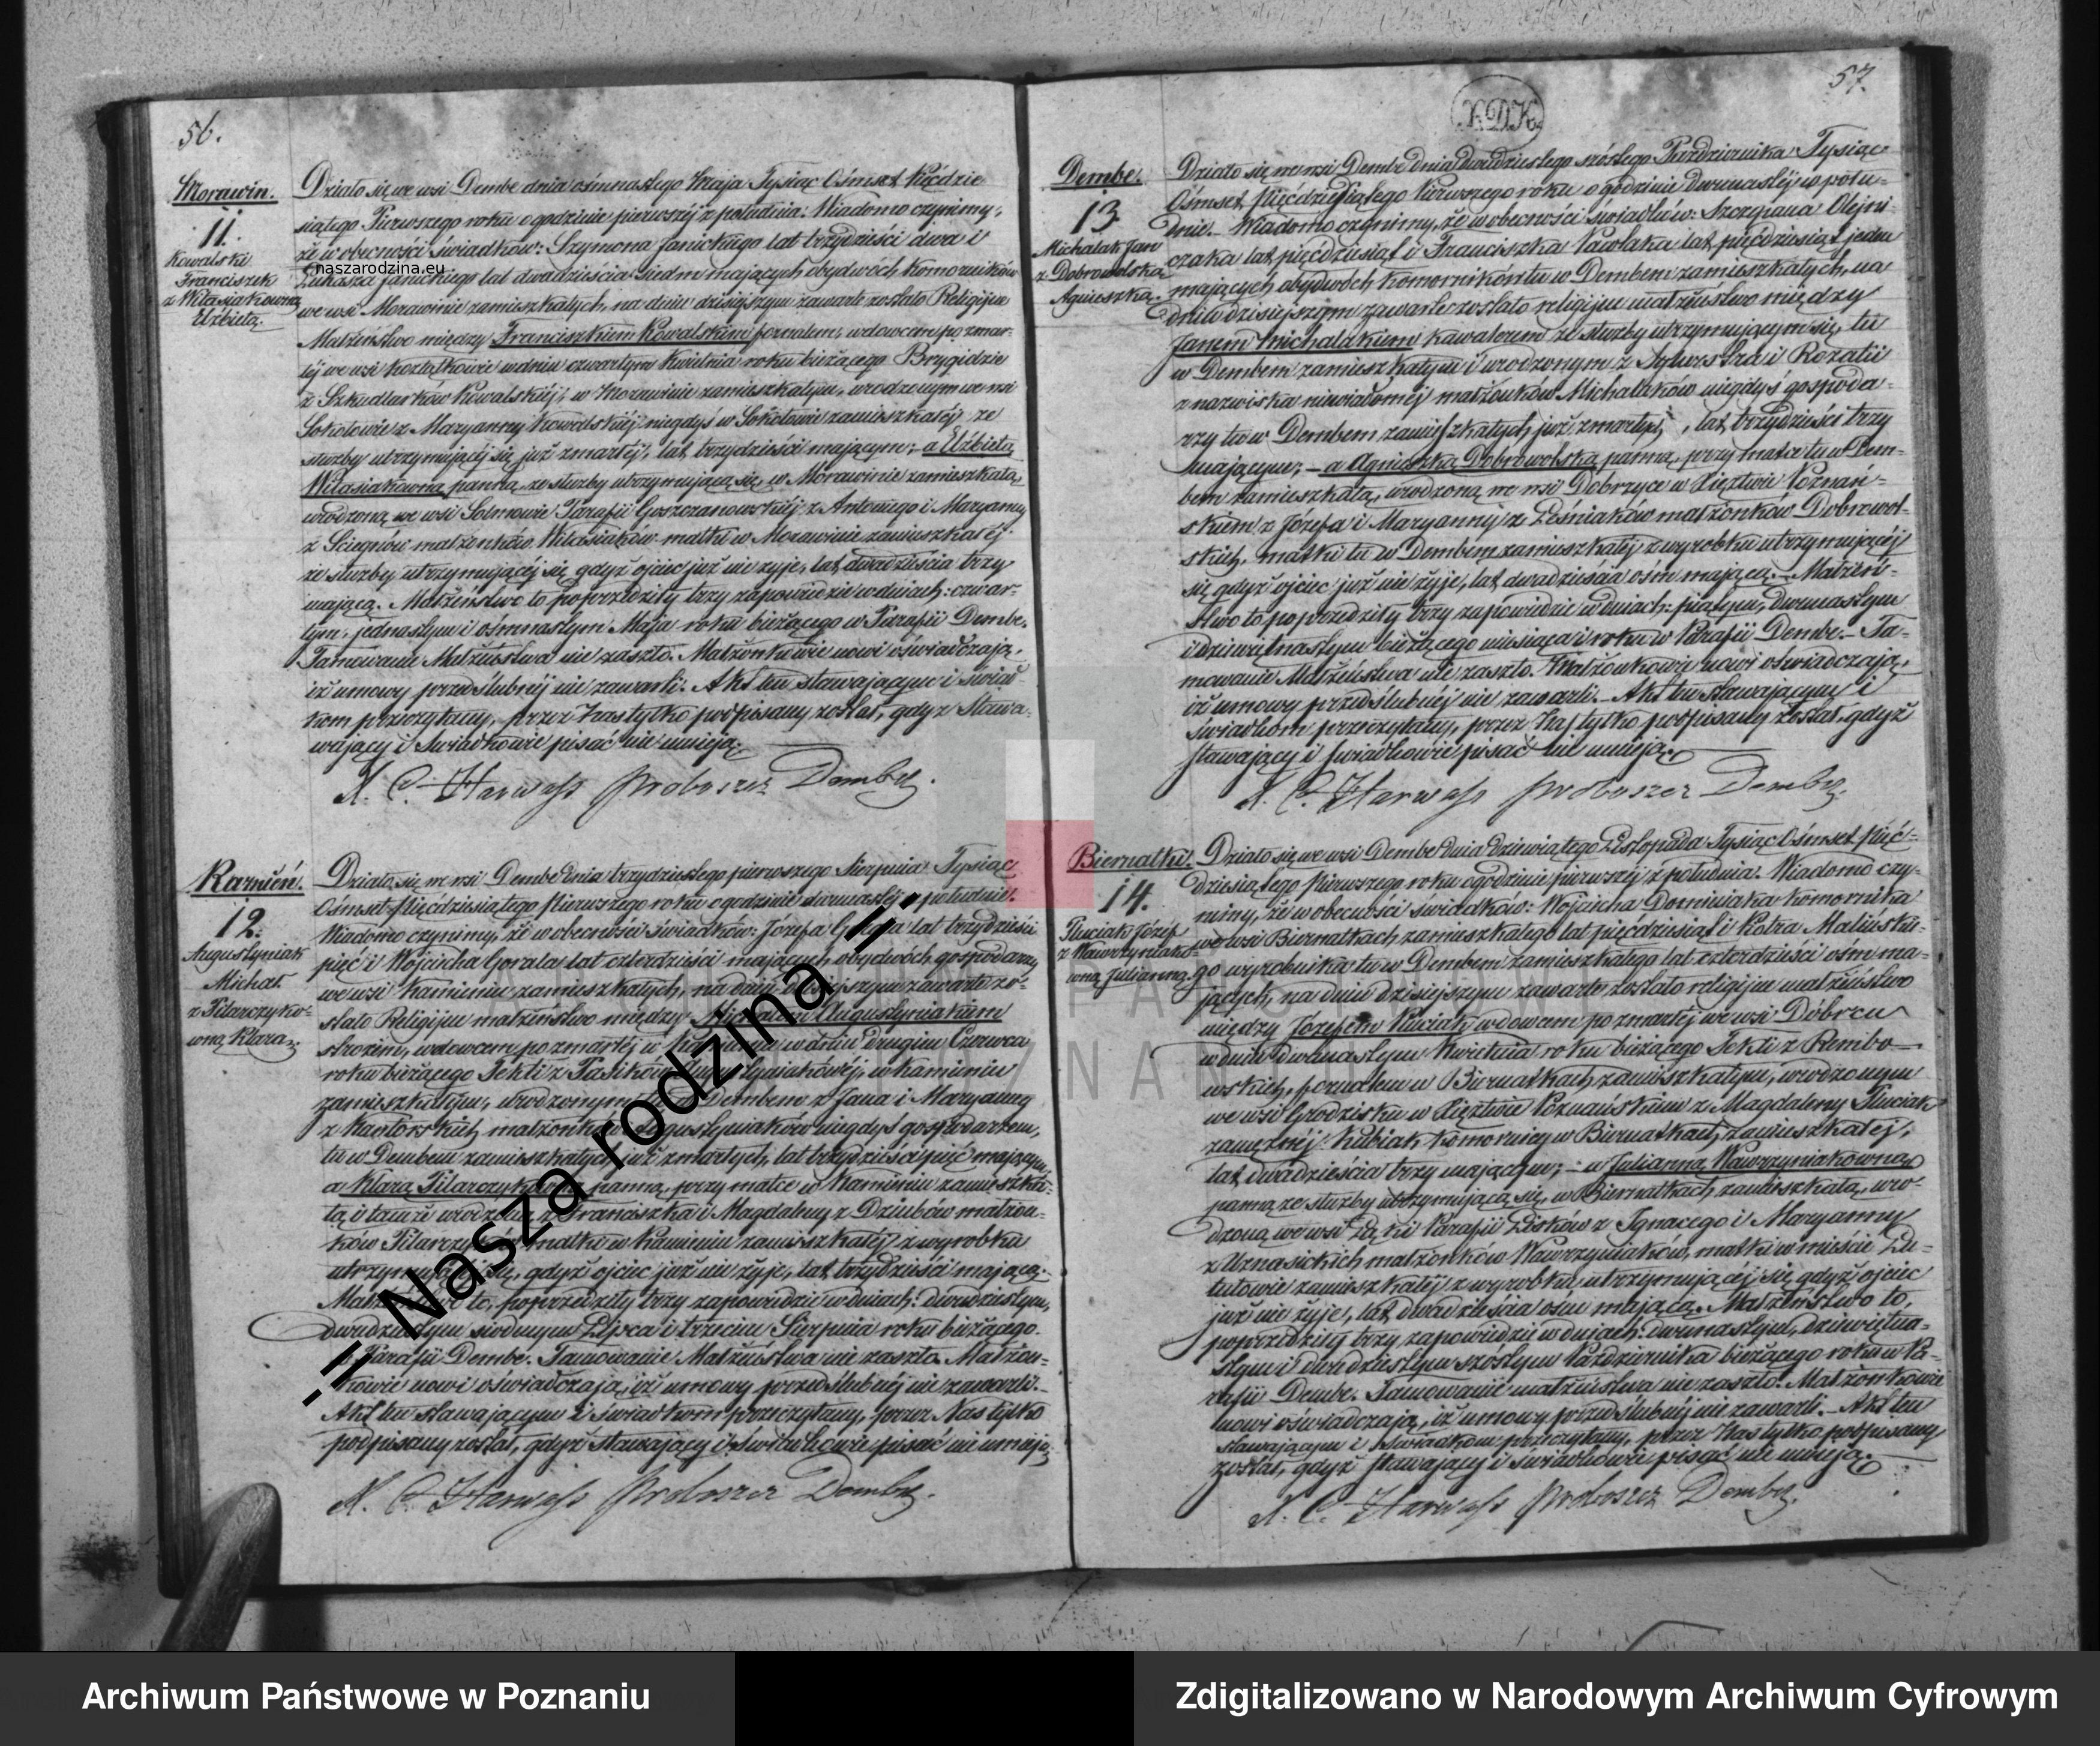 56.
Morawin.
11.
Kowalski
Franciszek
z Witasiakowną
Elżbietą.
Działo się we wsi Dembe dnia ośmnastego Maja Tysiąc Ośmset Pięćdzie
siątego Pierwszego roku o godzinie pierwszéj z południa. Wiadomo czynimy,
że w obecności świadków: Szymona Janickiego lat trzydzieści dwa i
Łukasza Janickiego lat dwadzieścia siedm mających obydwóch komorników
naszarodzina.eu
we wsi Morawinie zamieszkałych, na dniu dzisiejszym zawarte zostało Religijne
Małżeństwo między Franciszkiem Kowalskim fornalem, wdowcem po zmar-
łéj we wsi Koźlątkowie w dniu czwartym Kwietnia roku bieżącego Brygidzie
z Szkudlarków Kowalskiéj, w Morawinie zamieszkałym, urodzonym we wsi
Sokołowie z Maryanny Kowalskiéj niegdyś w Sokołowie zamieszkałéj ze
służby utrzymującéj się już zmarłéj, lat trzydzieści mającym; a Elżbietą
Witasiakowną panną, ze służby utrzymującą się, w Morawinie zamieszkałą,
urodzoną we wsi Parafii Goszczanowskiéj z Antoniego i Maryanny
z Sciegnów małżonków Witasiaków matki w Morawinie zamieszkałéj
ze służby utrzymującéj się gdyż ojciec już nie żyje, lat dwadzieścia trzy
mającą. Małżeństwo to poprzedziły trzy zapowiedzie w dniach: czwar-
tym, jednastym i ośmnastym Maja roku bieżącego w Parafii Dembe.
Tamowanie Małżeństwa nie zaszło. Małżonkowie nowi oświadczają,
iż umowy przedślubnéj nie zawarli. Akt ten stawającym i świad-
kom przeczytany, przez Nas tylko podpisany został, gdyż Stawa-
wający i Świadkowie pisać nie umieją.
X. C. Harwass Proboszcz Demby.
Kamień.
12.
Augustyniak
Michał
z Pilarczyko-
wną Klarą.
Działo się we wsi Dembe dnia trzydziestego pierwszego Sierpnia Tysiąc
Ośmset Pięćdziesiątego Pierwszego roku o godzinie dwunastéj w południe.
Wiadomo czynimy, że w obecności świadków: Józefa lat trzydzieści
pięć i Wojciecha Gorala lat czterdzieści mających obydwóch gospodarzy
we wsi Kamieniu zamieszkałych, na dniu dzisiejszym zawarte zo-
stało Religijne małżeństwo między Michałem Augustyniakiem
stróżem, wdowcem po zmarłéj w Kamieniu w dniu drugim Czerwca
roku bieżącego Tekli z Pasików Augustyniakowéj, w Kamieniu
zamieszkałym, urodzonym tu w Dembem z Jana i Maryanny
z Kantorskich małżonków Augustyniaków niegdyś gospodarzem,
tu w Dembem zamieszkałych już zmarłych, lat trzydzieści pięć mającym,
a Klarą Pilarczykowną panną, przy matce w Kamieniu zamieszka-
łą i tamże urodzoną z Franciszka i Magdaleny z Dziubów małżon-
ków Pilarczyków matki w Kamieniu zamieszkałéj z wyrobku
utrzymującéj się, gdyż ojciec już nie żyje, lat trzydzieści mającą.
Małżeństwo to, poprzedziły trzy zapowiedzie w dniach: dwudziestym,
dwudziestym siódmym Lipca i trzecim Sierpnia roku bieżącego
w Parafii Dembe. Tamowanie Małżeństwa nie zaszło. Małżon-
kowie nowi oświadczają, iż umowy przedślubnéj nie zawarli.
Akt ten stawającym i świadkom przeczytany, przez Nas tylko
podpisany został, gdyż stawający i świadkowie pisać nie umieją.
X. C. Harwass Proboszcz Demby.
-= Nasza rodzina =-
57.
KDK
Dembe.
13
Michalak Jan
z Dobrowolską
Agnieszką.
Działo się we wsi Dembe dnia dwudziestego szóstego Października Tysiąc
Ośmset Pięćdziesiątego Pierwszego roku o godzinie dwunastéj w połu-
dnie. Wiadomo czynimy, że w obecności świadków: Szczepana Olejni-
czaka lat pięćdziesiąt i Franciszka Pawlaka lat pięćdziesiąt jeden
mających obydwóch komorników tu w Dembem zamieszkałych, na
dniu dzisiejszym zawarte zostało religijne małżeństwo między
Janem Michalakiem kawalerem ze służby utrzymującym się, tu
w Dembem zamieszkałym i urodzonym z Sylwestra i Rozalii
z nazwiska niewiadoméj małżonków Michalaków niegdyś gospoda-
rzy tu w Dembem zamieszkałych już zmarłych, lat trzydzieści trzy
mającym; – a Agnieszką Dobrowolską panną, przy matce tu w Dem-
bem zamieszkałą, urodzoną we wsi Dobrzyce w Xięztwie Poznań-
skiem z Józefa i Maryanny z Leśniaków małżonków Dobrowol-
skich, matki tu w Dembem zamieszkałéj z wyrobku utrzymującéj
się gdyż ojciec już nie żyje, lat dwadzieścia ośm mającą. – Małżeń-
stwo to poprzedziły trzy zapowiedzie w dniach: piątym, dwunastym
i dziewiętnastym bieżącego miesiąca i roku w Parafii Dembe. – Ta-
mowanie Małżeństwa nie zaszło. Małżonkowie nowi oświadczają,
iż umowy przedślubnéj nie zawarli. – Akt ten stawającym i
świadkom przeczytany, przez Nas tylko podpisany został, gdyż
stawający i świadkowie pisać nie umieją.
X. C. Harwass Proboszcz Demby.
Biernatki.
14.
Pluciak Józef
z Wawrzyniako-
wną Julianną.
Działo się we wsi Dembe dnia dziewiątego Listopada Tysiąc Ośmset Pięć-
dziesiątego Pierwszego roku o godzinie pierwszéj z południa. Wiadomo czy-
nimy, że w obecności świadków: Wojciecha Dominiaka komornika
we wsi Biernatkach zamieszkałego lat pięćdziesiąt i Piotra Malińskie-
go wyrobnika tu w Dembem zamieszkałego lat czterdzieści ośm ma-
jących, na dniu dzisiejszym zawarte zostało religijne małżeństwo
między Józefem Pluciak wdowcem po zmarłéj we wsi
w dniu dwunastym Kwietnia roku bieżącego Tekli z Rembo-
wskich, fornalem w Biernatkach zamieszkałym, urodzonym
we wsi Grodzisku w Xięztwie Poznańskiem z Magdaleny Pluciak
zamężnéj Kubiak komornicy w Biernatkach zamieszkałéj,
lat dwadzieścia trzy mającym; – a Julianną Wawrzyniakowną
panną ze służby utrzymującą się, w Biernatkach zamieszkałą, uro-
dzoną we wsi Parafii Lisków z Ignacego i Maryanny
z małżonków Wawrzyniaków, matki w mieście Lu-
tutowie zamieszkałéj z wyrobku utrzymującéj się gdyż ojciec
już nie żyje, lat dwadzieścia ośm mającą. Małżeństwo to,
poprzedziły trzy zapowiedzie w dniach: dwunastym, dziewiętna-
stym i dwudziestym szóstym Października bieżącego roku w Pa-
rafii Dembe. Tamowanie małżeństwa nie zaszło. Małżonkowie
nowi oświadczają, iż umowy przedślubnéj nie zawarli. – Akt ten
stawającym i świadkom przeczytany, przez Nas tylko podpisany
został, gdyż stawający i świadkowie pisać nie umieją.
X. C. Harwass Proboszcz Demby.
Archiwum Państwowe w Poznaniu
Zdigitalizowano w Narodowym Archiwum Cyfrowym